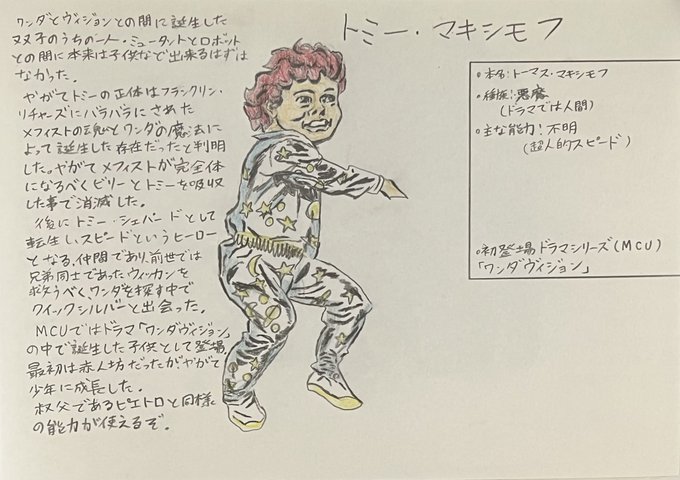 トミー・マキシモフ
ワンダとヴィジョンとの間に誕生した
双子のうちの一人・ミュータントとロボット
との間に本来は子供など出来るはずは
なかった。
やがてトミーの正体はフランクリン・
リチャーズにバラバラにされた
メフィストの魂とワンダの魔法に
よって誕生した存在だったと判明
した。やがてメフィストが完全体
になるべくビリーとトミーを吸収
した事で消滅した。
後にトミー・シェパードとして
転生し、スピードというヒーロー
となる。仲間であり、前世では
兄弟同士であった、ウィッカンを
救うべく、ワンダを探す中で
クイックシルバーと出会った。
MCUではドラマ「ワンダヴィジョン」
の中で誕生した子供として登場
最初は赤人坊だったが、やがて
少年に成長した。
叔父であるピエトロと同様
の能力が使えるぞ。
・本名:トーマス・マキシモフ
・種族:悪魔
(ドラマでは人間)
・主な能力:不明
(超人的スピード)
・初登場 ドラマシリーズ(MCU)
「ワンダヴィジョン」